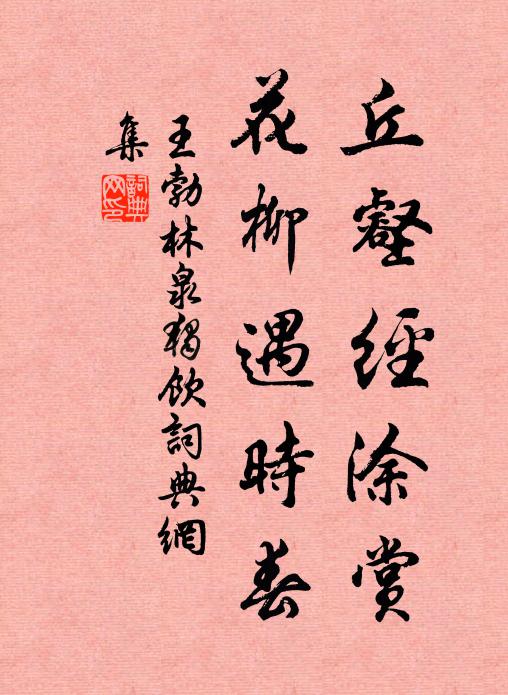 丘壑經涂賞
花柳遇時春
王勃林泉獨飲詞典網
集
詞典网印